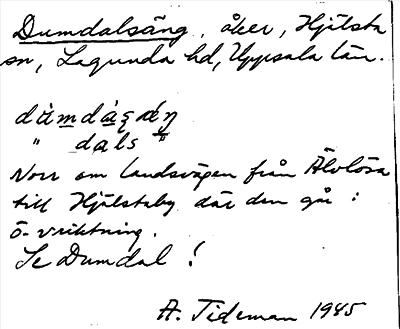 Dumdalsäng, åker, Hjälsta
sn, Lagunda hd, Uppsala län.
" dals "
Norr om landsvägen från Älvlösa
till Hjälstaby där den går i
ö-vriktning.
Se Dumdal!
A. Tideman 1945